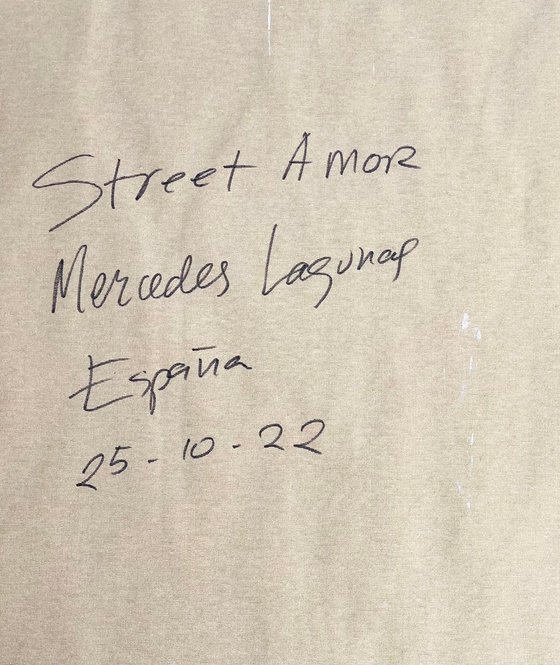 Street Amor
Mercedes Lagunas
España
25-10-22